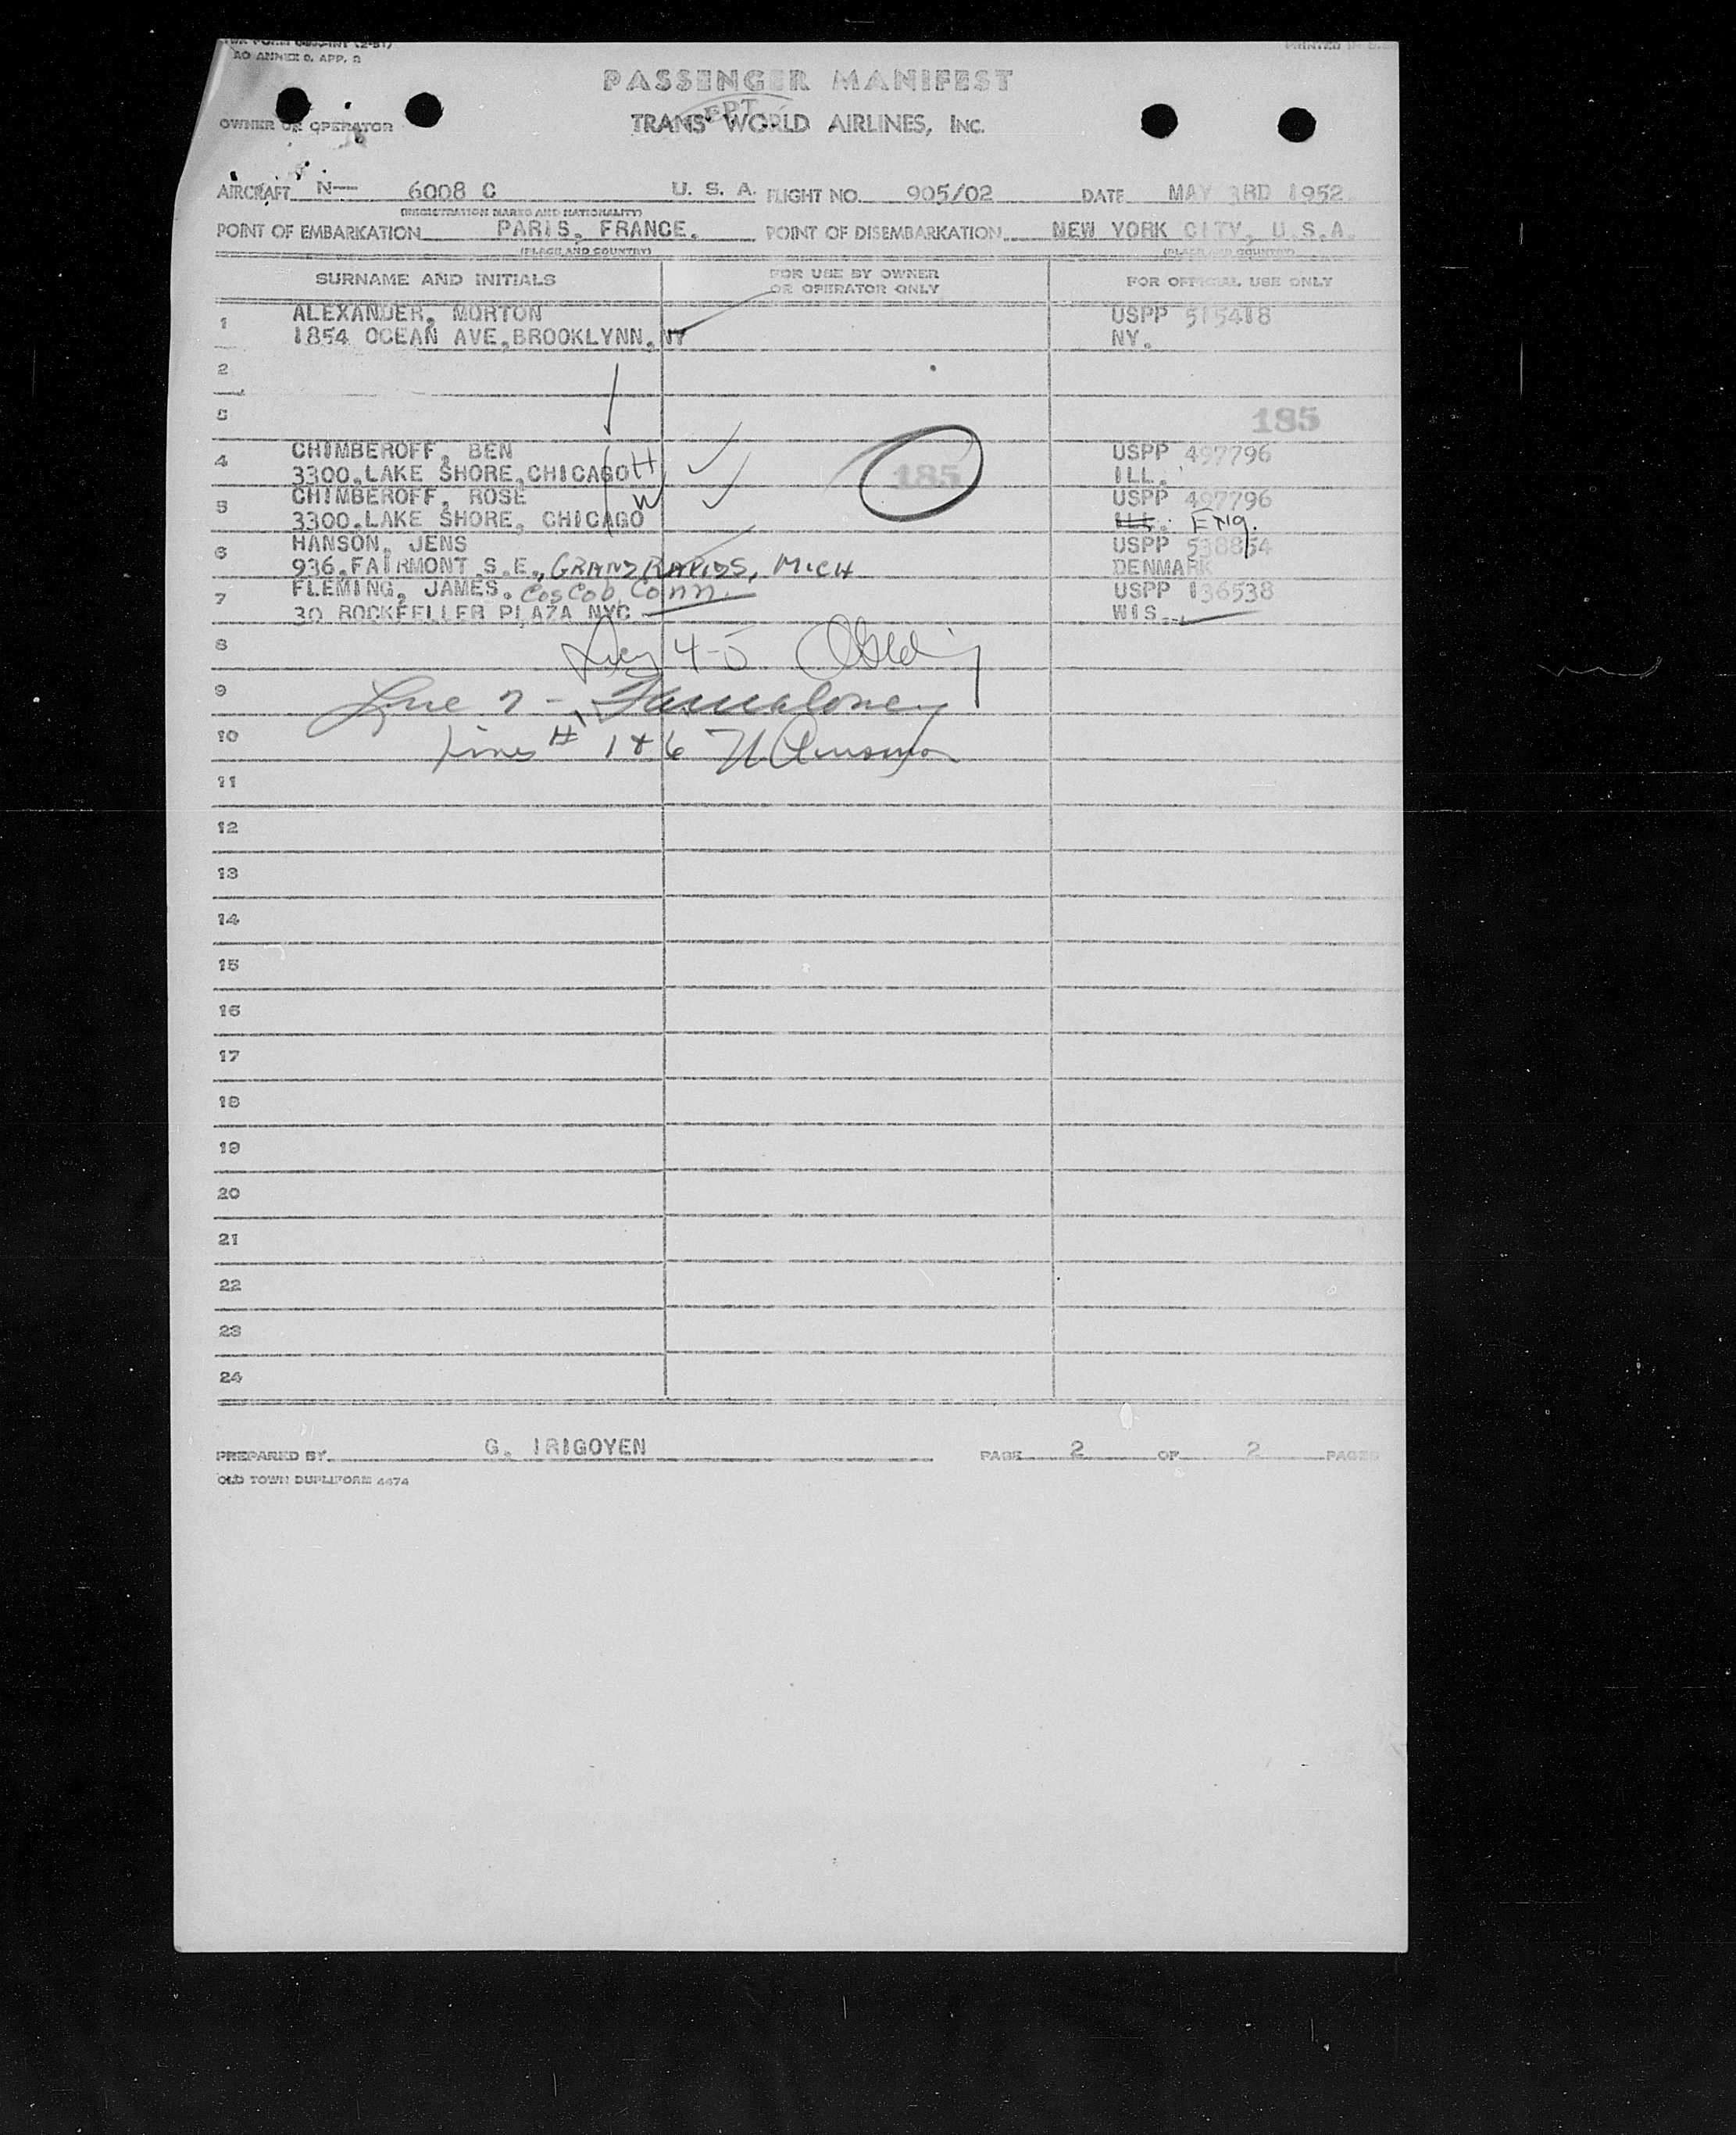 AO ANNEX 9, APP.
PRINTED IN
PASSENGER MANIFEST
OWNER OR OPERATOR
TRANS WORLD AIRLINES, INC.
AIRCRAFT N— 6008 C U. S. A. FLIGHT NO. 905/02 DATE MAY 3RD 1952
(REGISTRATION MARKS AND NATIONALITY)
POINT OF EMBARKATION PARIS, FRANCE. POINT OF DISEMBARKATION NEW YORK CITY, U.S.A.
(PLACE AND COUNTRY) (PLACE AND COUNTRY)
SURNAME AND INITIALS FOR USE BY OWNER OR OPERATOR ONLY FOR OFFICIAL USE ONLY
1 ALEXANDER, MORTON USPP 515418
1854 OCEAN AVE,BROOKLYNN, NY NY.
2
3 185
4 CHIMBEROFF, BEN USPP 497796
3300,LAKE SHORE,CHICAGO H 185 ILL.
5 CHIMBEROFF, ROSE W USPP 497796
3300,LAKE SHORE, CHICAGO ILL. Eng.
6 HANSON, JENS USPP 538854
936,FAIRMONT S.E., GRAND RAPIDS, MICH DENMARK
7 FLEMING, JAMES. Cos Cob, Conn. USPP 136538
30 ROCKEFELLER PLAZA NYC WIS.
8 4-5
9 Line 7 -
10 Lines # 1 & 6
11
12
13
14
15
16
17
18
19
20
21
22
23
24
PREPARED BY G. IRIGOYEN PAGE 2 OF 2 PAGES
OLD TOWN DUPLIFORM 4474